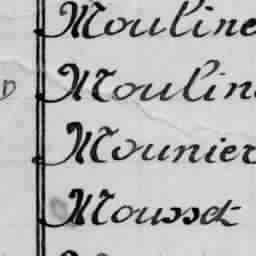 Mouline
Moulin
Mounier
Mousset